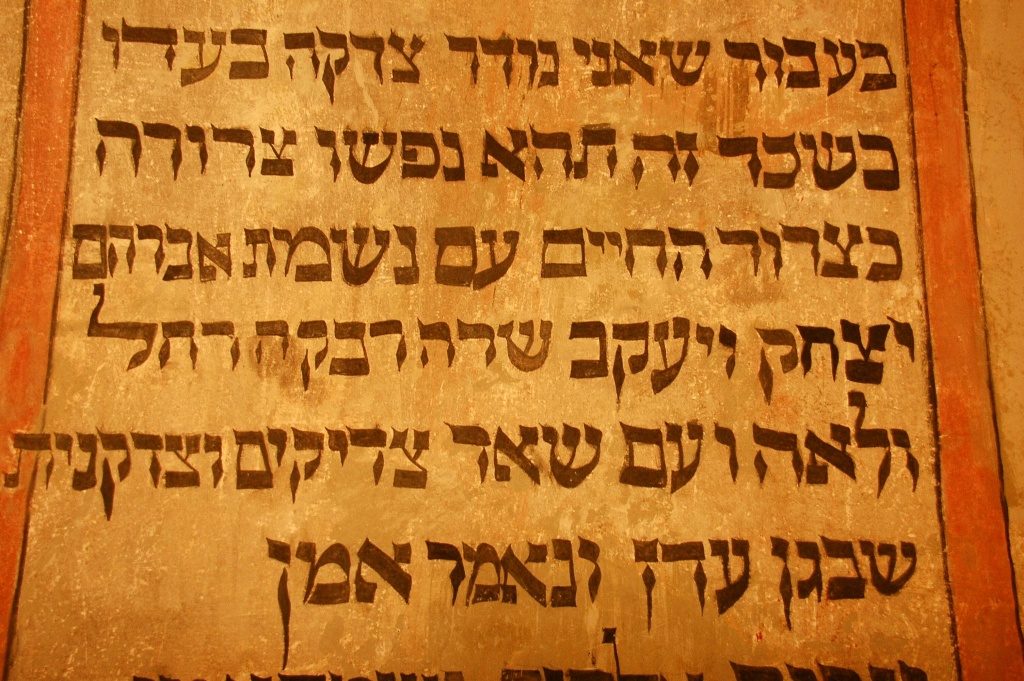 בעבור שאני נודר צדקה בעדו
בשכר זה תהא נפשו צרורה
בצרור החיים עם נשמת אברהם
יצחק ויעקב שרה רבקה רחל
ולאה ועם שאר צדיקים וצדקניות
שבגן עדן ונאמר אמן